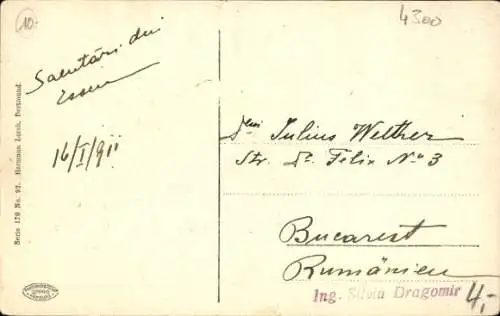 10.-
4300
Salutări din
Essen
16/I/911
Dlui Iulius Welther
Str. Dr. Felix No 3
Bucarest
Rumänien
Ing. Silviu Dragomir
4,-
Serie 178 No. 92. Hermann Lorch, Dortmund.